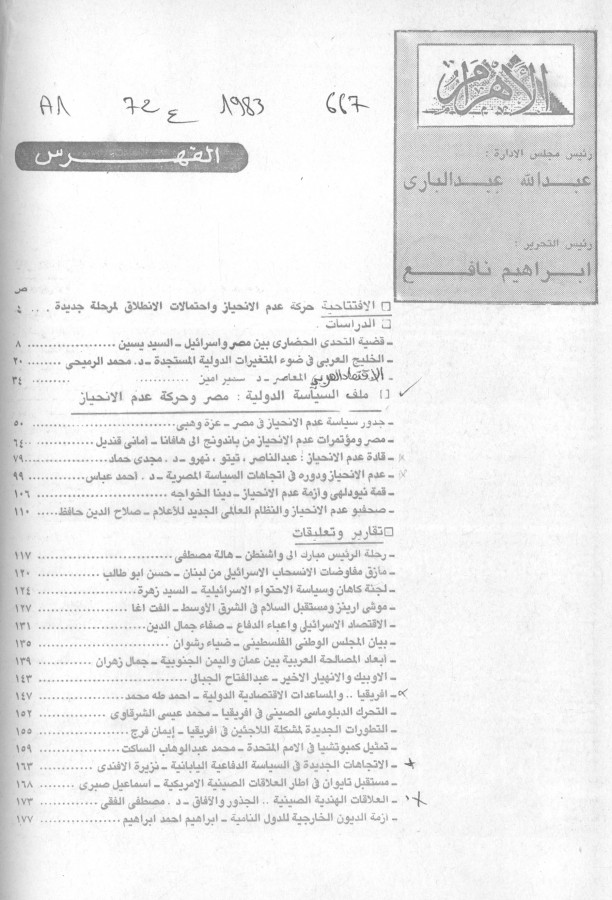 A1 72 ع 1983 667
الأهرام
رئيس مجلس الادارة :
عبدالله عبدالبارى
رئيس التحرير :
ابراهيم نافع
الفهرس
ص
□ الافتتاحية حركة عدم الانحياز واحتمالات الانطلاق لمرحلة جديدة .... ٤
□ الدراسات .
ـ قضية التحدى الحضارى بين مصر واسرائيل ـ السيد يسين ............... ٨
ـ الخليج العربى فى ضوء المتغيرات الدولية المستجدة ـ د. محمد الرميحى ........ ٢٠
ـ الاقتصاد العربى المعاصر ـ د سمير امين .......... ٣٤
□ ملف السياسة الدولية : مصر وحركة عدم الانحياز
ـ جدور سياسة عدم الانحياز فى مصر ـ عزة وهبى ................ ٥٠
ـ مصر ومؤتمرات عدم الانحياز من باندونج الى هافانا ـ أمانى قنديل ........ ٦٤
ـ قادة عدم الانحياز : عبدالناصر ، تيتو ، نهرو ـ د. مجدى حماد .......... ٧٩
ـ عدم الانحياز ودوره فى اتجاهات السياسة المصرية ـ د . احمد عباس ........ ٩٩
ـ قمة نيودلهى وأزمة عدم الانحياز ـ دينا الخواجه ................ ١٠٦
ـ صحفيو عدم الانحياز والنظام العالمى الجديد للأعلام ـ صلاح الدين حافظ..... ١١٠
□ تقارير وتعليقات
ـ رحلة الرئيس مبارك الى واشنطن ـ هالة مصطفى ................ ١١٧
ـ مازق مفاوضات الانسحاب الاسرائيلى من لبنان ـ حسن ابو طالب .......... ١٢٠
ـ لجنة كاهان وسياسة الاحتواء الاسرائيلية ـ السيد زهرة ............ ١٢٤
ـ موشى ارينز ومستقبل السلام فى الشرق الأوسط ـ الفت اغا ............ ١٢٧
ـ الاقتصاد الاسرائيلى واعباء الدفاع ـ صفاء جمال الدين ............ ١٣١
ـ بيان المجلس الوطنى الفلسطينى ـ ضياء رشوان ................ ١٣٥
ـ أبعاد المصالحة العربية بين عمان واليمن الجنوبية ـ جمال زهران .......... ١٣٩
ـ الاوبيك والانهيار الاخير ـ عبدالفتاح الجبالى ................ ١٤٣
ـ افريقيا .. والمساعدات الاقتصادية الدولية ـ احمد طه محمد ............ ١٤٧
ـ التحرك الدبلوماسى الصينى فى افريقيا ـ محمد عيسى الشرقاوى .......... ١٥٢
ـ التطورات الجديدة لمشكلة اللاجئين فى افريقيا ـ إيمان فرج ............ ١٥٥
ـ تمثيل كمبوتشيا فى الامم المتحدة ـ محمد عبدالوهاب الساكت .......... ١٥٩
ـ الاتجاهات الجديدة فى السياسة الدفاعية اليابانية ـ نزيرة الافندى ........ ١٦٣
ـ مستقبل تايوان فى اطار العلاقات الصينية الامريكية ـ اسماعيل صبرى ...... ١٦٨
ـ العلاقات الهندية الصينية .. الجذور والآفاق ـ د . مصطفى الفقى ........ ١٧٣
ـ ازمة الديون الخارجية للدول النامية ـ ابراهيم احمد ابراهيم ............ ١٧٧